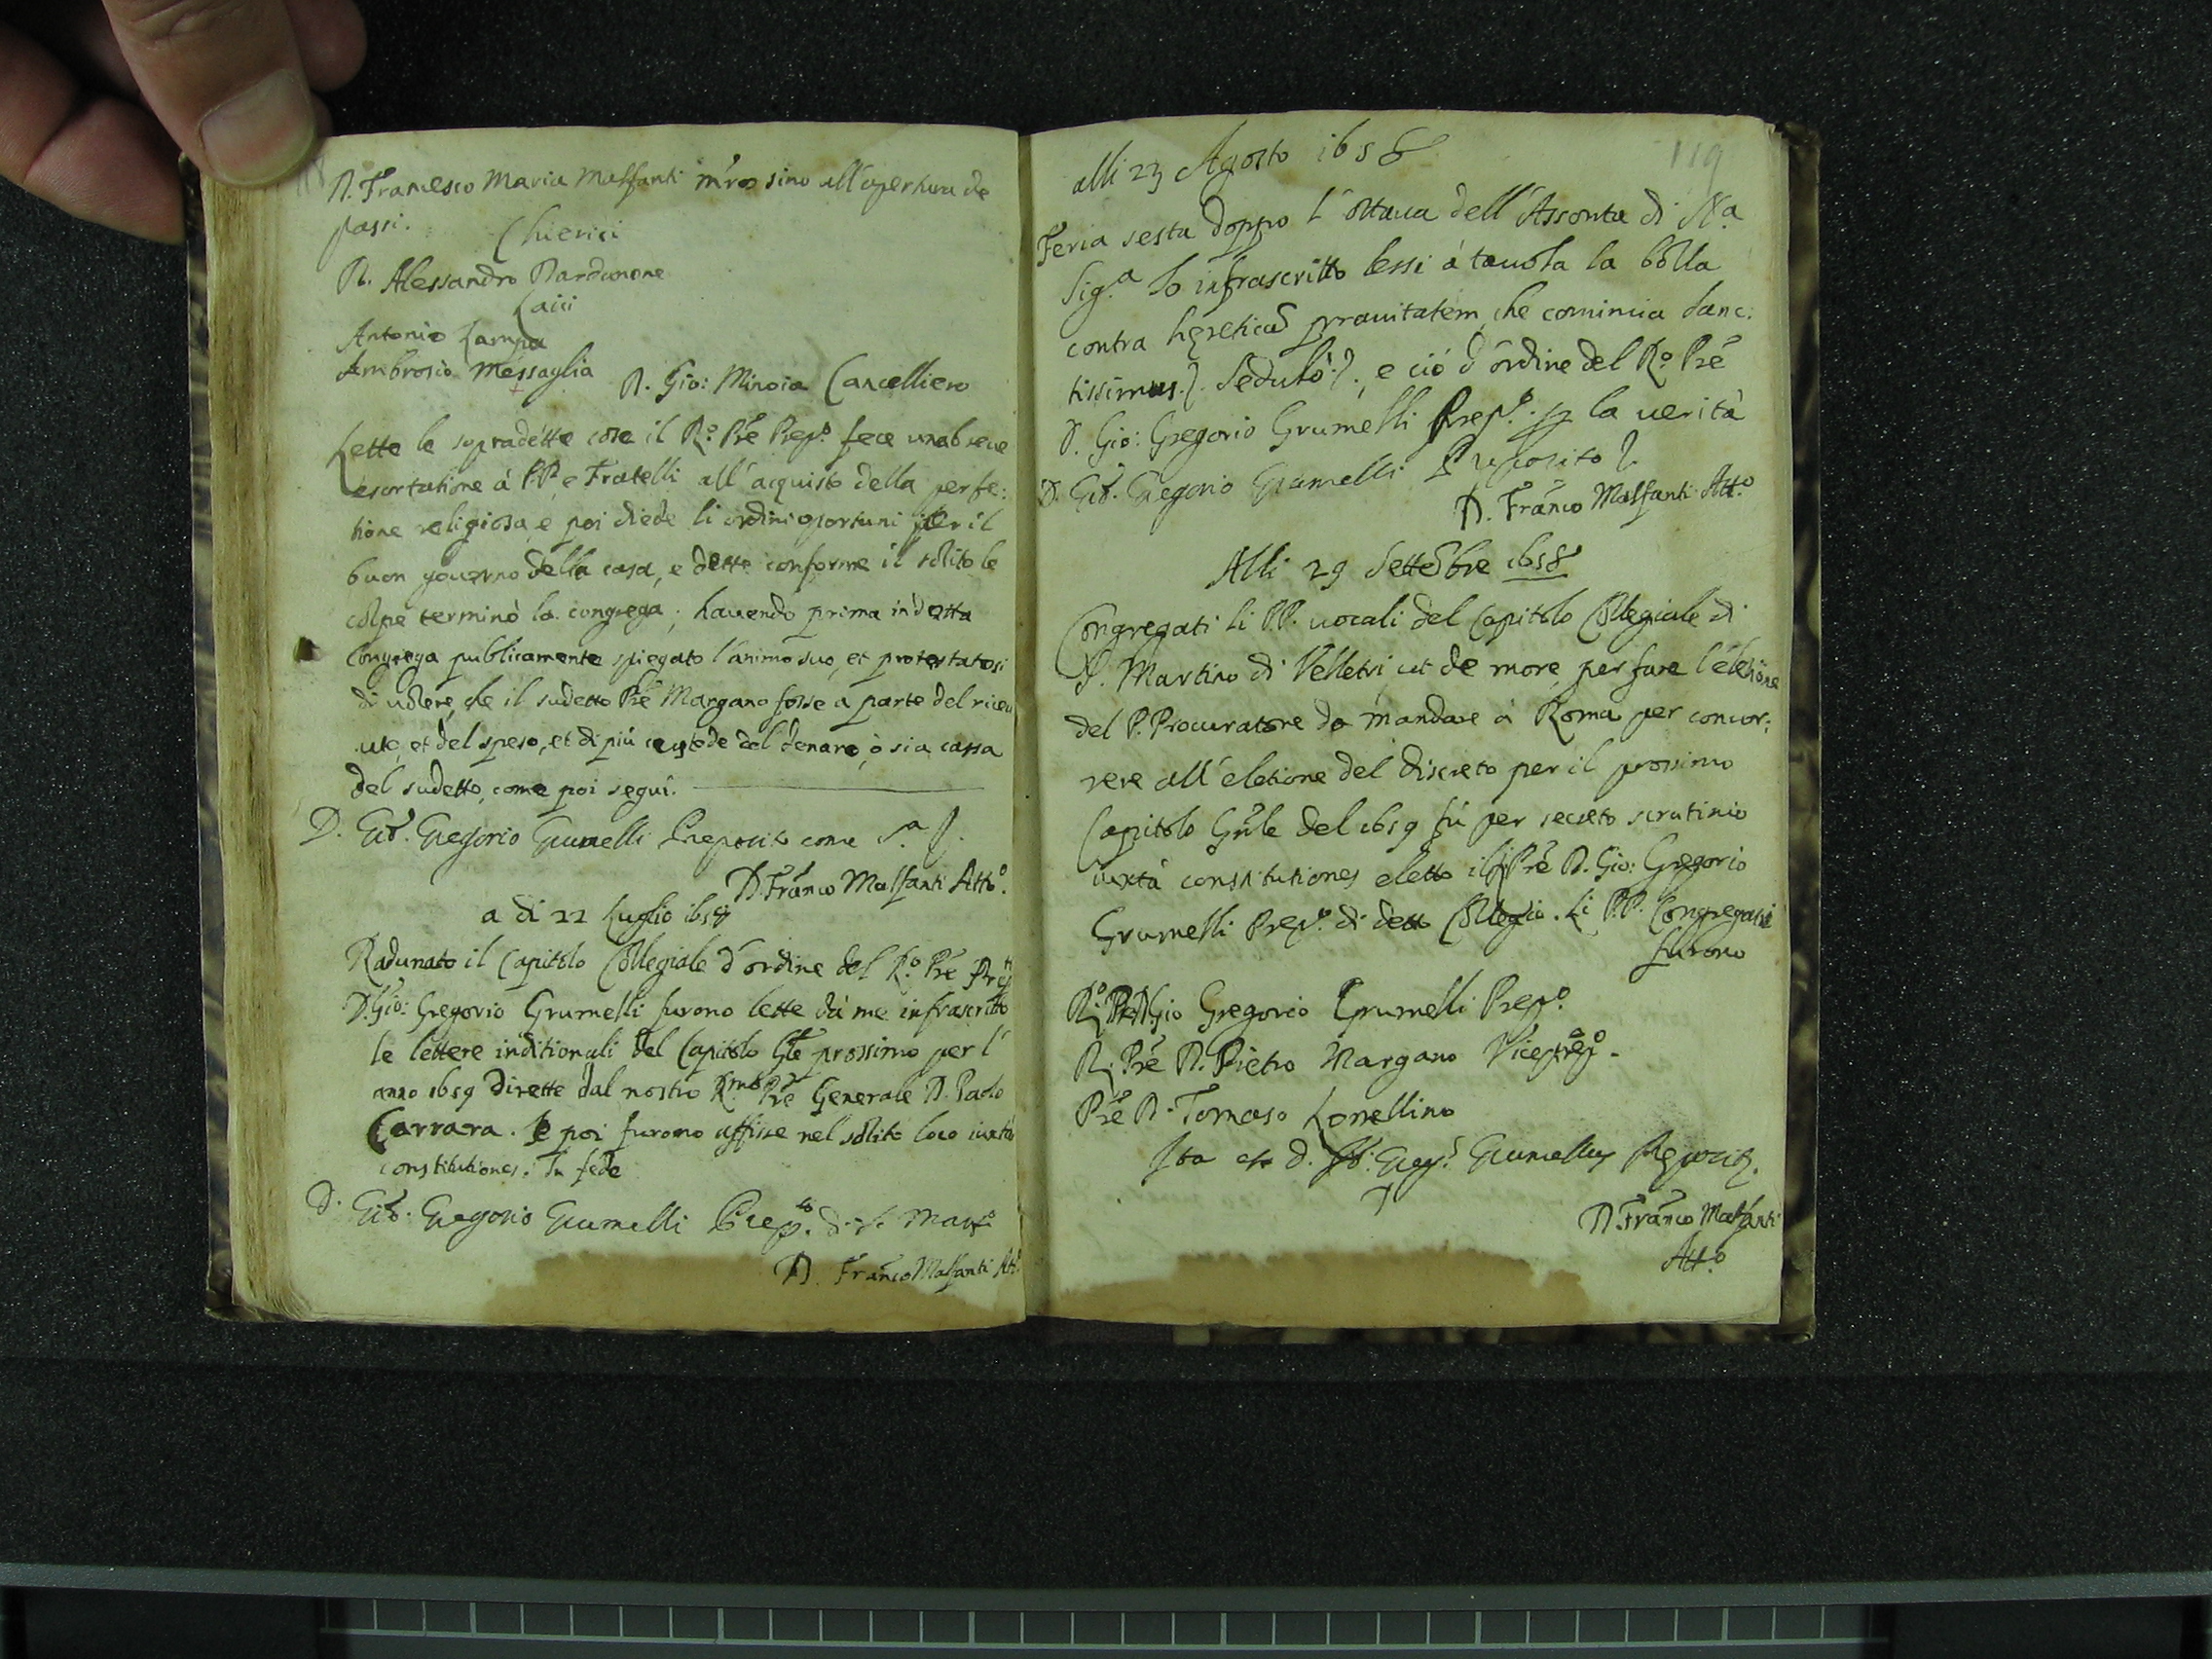 118
D. Francesco Maria Malfanti m̃ro sino all'apertura de
passi.
Chierici
D. Alessandro Nardunone
Laici
Antonio Lampa
Ambrosio Messaglia
D. Gio: Minoia Cancelliero
Lette le sopradette cose il R.º Prẽ Prep.º fece una breve
esortatione à PP, e Fratelli all'acquisto della perfe:
tione religiosa, e poi diede li ordini oportuni per il
buon gouerno della casa, e dette conforme il solito le
colpe terminò la congrega; hauendo prima in detta
Congrega publicamente spiegato l'animo suo, et protestatosi
di uolere, che il sudetto Prẽ Margano fosse a parte del riceu
uto, et del speso, et di più custode del denaro, ò sia cassa
del sudetto, come poi seguì.
D. Gio. Gregorio Grumelli Preposito come S.ª
D. Frãnco Malfanti Att.º
a di 22 Luglio 1658
Radunato il Capitolo Collegiale d'ordine del R.º Prẽ Prep
D. Gio: Gregorio Grumelli furono lette dà me infrascritto
le lettere inditionali del Capitolo Gle prossimo per l'
anno 1659 dirette dal nostro R.mo Prẽ Generale D. Paolo
Carrara. E poi furono affisse nel solito loco iuxtà
constitutiones. In fede
D. Gio. Gregorio Grumelli Prep.to di S. Mart.º
D. Frãnco Malfanti Att.º
119
alli 23 Agosto 1658
Feria sesta doppo l'ottaua dell'Assonta di N.ª
Sig.ª Io infrascritto lessi à tauola la bolla
contra hereticã prauitatem, che comincia Sanc:
tissimus. Sedulò, e ciò d'ordine del R.º Prẽ
D. Gio: Gregorio Grumelli Prep.º per la uerità
D. Gio. Gregorio Grumelli Preposito
D. Frãnco Malfanti Att.º
Alli 29 Settẽbre 1658
Congregati li PP. uocali del Capitolo Collegiale di
S. Martino di Velletri, ut de more, per fare l'eletione
del P. Procuratore da mandare à Roma per concor:
rere all'eletione del Discreto per il prossimo
Capitolo Gñle del 1659 fù per secreto scrutinio
iuxtà constitutiones eletto il Prẽ D. Gio: Gregorio
Grumelli Prep.º di detto Collegio. Li P.P. Congregati
furono
R.º Prẽ D. Gio Gregorio Grumelli Prep.º
R. Prẽ D. Pietro Margano Viceprep.º
Prẽ D. Tomaso Lonellino
Ita est D. Jo: Greg.s Grumellus
D. Frãnco Malfanti
Att.º